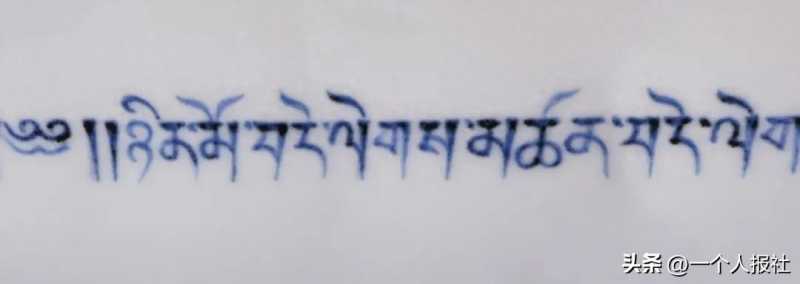 ༄༅།།ཉིན་མོ་བདེ་ལེགས་མཚན་བདེ་ལེག
头条 @一个人报社